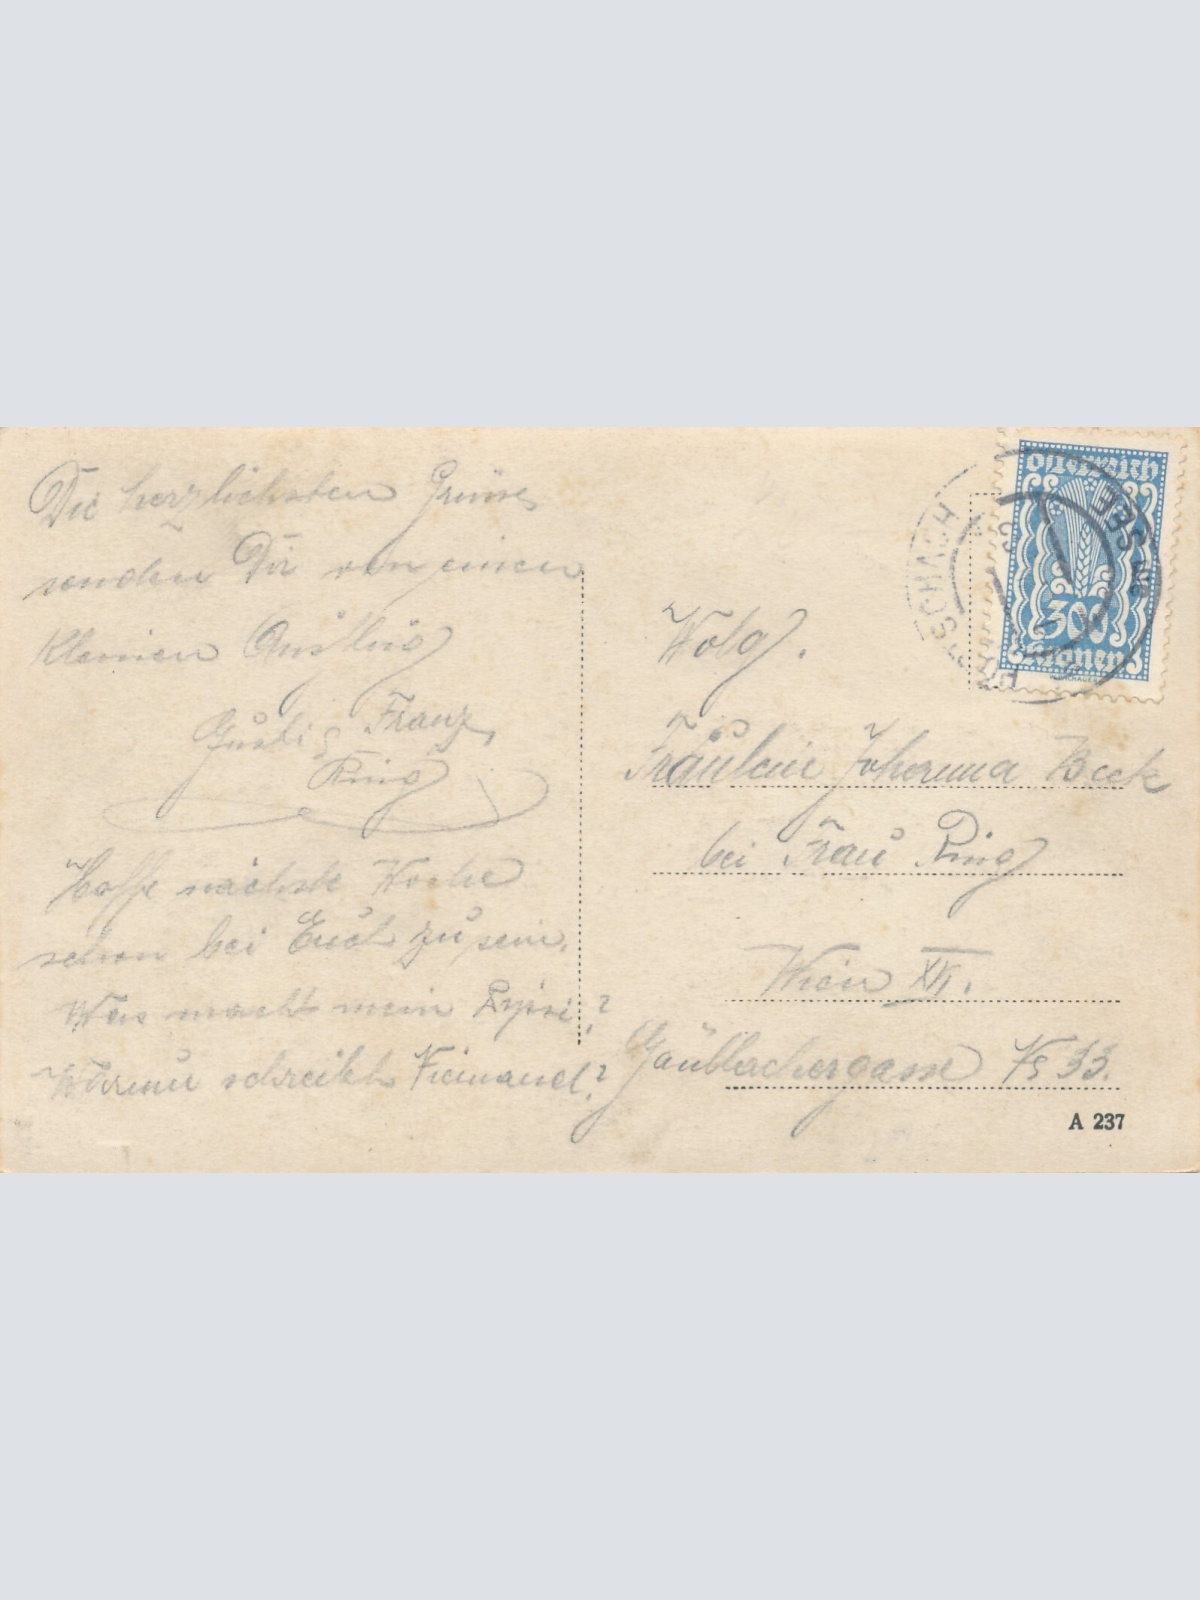 Die herzlichsten Grüsse
senden Dir von einen
kleinen Ausflug
Gusti, Franz,
Ring
Hoffe nächste Woche
schon bei Euch zu sein.
Was macht mein
Warum schreibt Niemand?
Wolg.
Fräulein Johanna Beck
bei Frau Ring
Wien XII.
33.
Österreich
300
Kronen
SEE
A 237